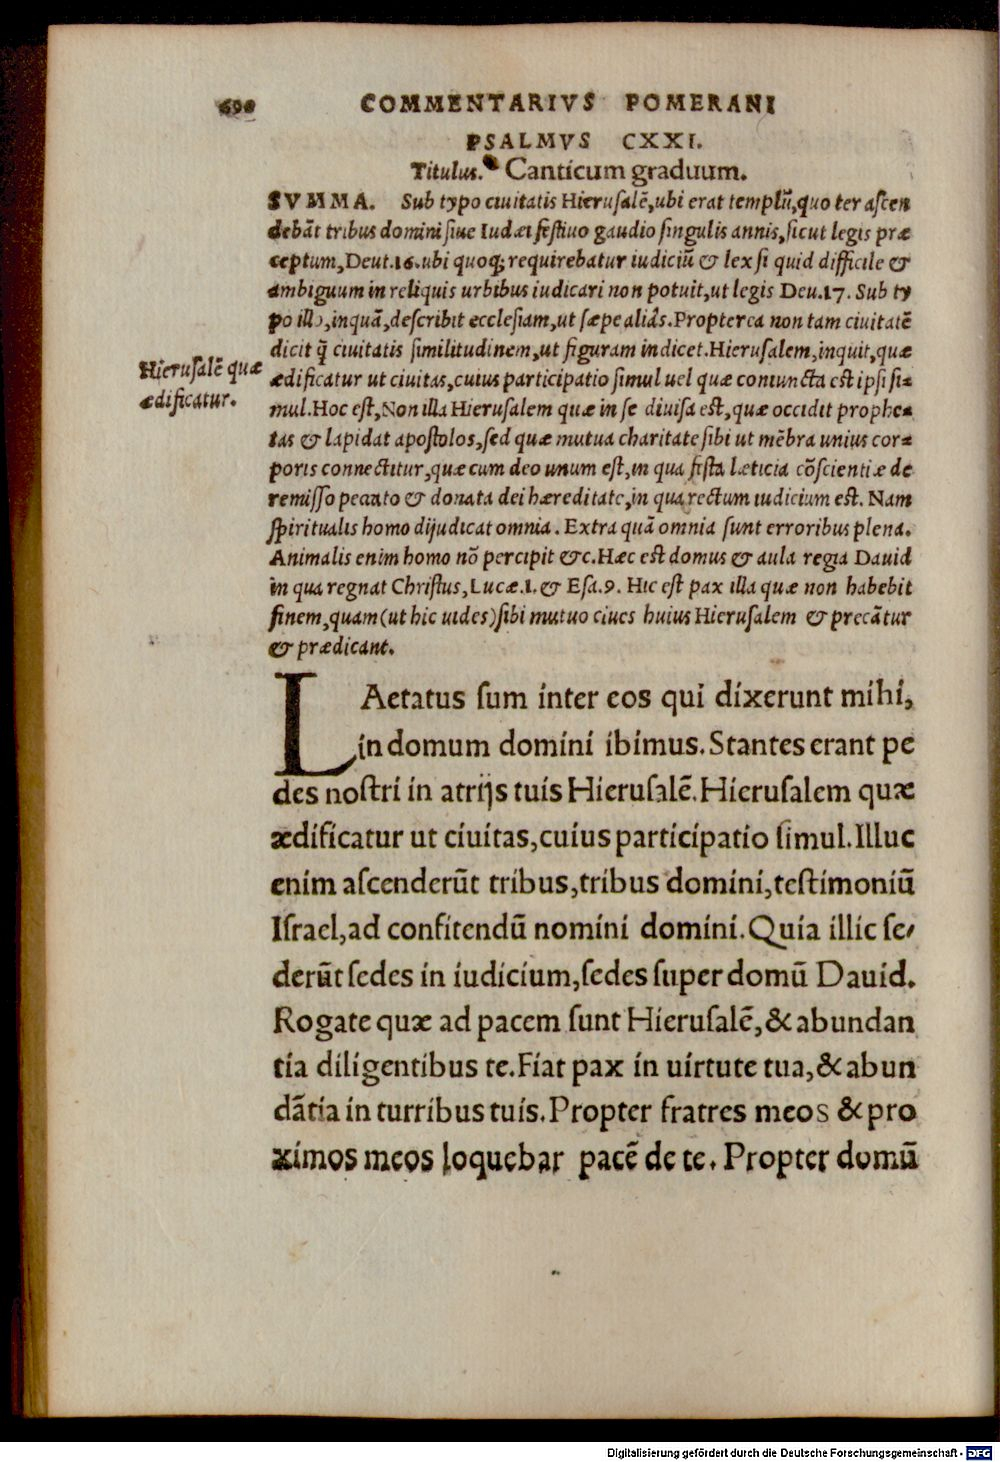 690 COMMENTARIVS POMERANI
PSALMVS CXXI.
Titulus. Canticum graduum.
SVMMA. Sub typo ciuitatis Hierusalē, ubi erat templū, quo ter ascen
debāt tribus domini siue Iudæi festiuo gaudio singulis annis, sicut legis præ
ceptum, Deut.16. ubi quoq; requirebatur iudiciū & lex si quid difficile &
ambiguum in reliquis urbibus iudicari non potuit, ut legis Deu.17. Sub ty
po illo, inquā, describit ecclesiam, ut sæpe aliâs. Propterea non tam ciuitatē
dicit q̄ ciuitatis similitudinem, ut figuram indicet. Hierusalem, inquit, quæ
Hierusalē quæ
ædificatur.
ædificatur ut ciuitas, cuius participatio simul uel quæ coniuncta est ipsi si=
mul. Hoc est, Non illa Hierusalem quæ in se diuisa est, quæ occidit prophe=
tas & lapidat apostolos, sed quæ mutua charitate sibi ut mēbra unius cor=
poris connectitur, quæ cum deo unum est, in qua festa læticia cōscientiæ de
remisso peccato & donata dei hæreditate, in qua rectum iudicium est. Nam
spiritualis homo dijudicat omnia. Extra quā omnia sunt erroribus plena.
Animalis enim homo nō percipit &c. Hæc est domus & aula regia Dauid
in qua regnat Christus, Lucæ.1. & Esa.9. Hic est pax illa quæ non habebit
finem, quam (ut hic uides) sibi mutuo ciues huius Hierusalem & precātur
& prædicant.
LAetatus sum inter eos qui dixerunt mihi,
in domum domini ibimus. Stantes erant pe
des nostri in atrijs tuis Hierusalē. Hierusalem quæ
ædificatur ut ciuitas, cuius participatio simul. Illuc
enim ascenderūt tribus, tribus domini, testimoniū
Israel, ad confitendū nomini domini. Quia illic se/
derūt sedes in iudicium, sedes super domū Dauid.
Rogate quæ ad pacem sunt Hierusalē, & abundan
tia diligentibus te. Fiat pax in uirtute tua, & abun
dātia in turribus tuis. Propter fratres meos & pro
ximos meos loquebar pacē de te. Propter domū
Digitalisierung gefördert durch die Deutsche Forschungsgemeinschaft - DFG